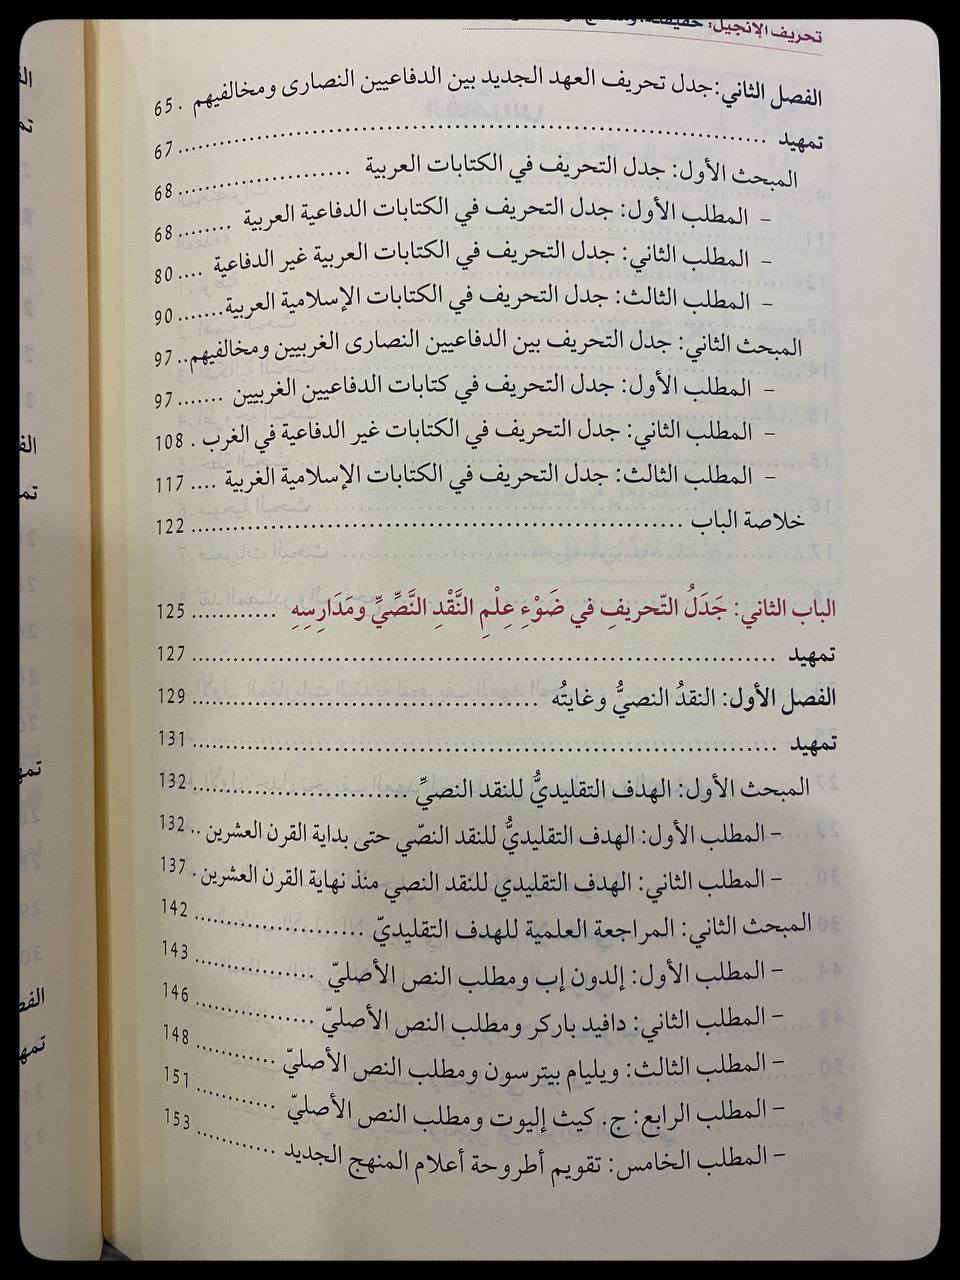 تحريف الإنجيل: حقيقته
الفصل الثاني: جدل تحريف العهد الجديد بين الدفاعيين النصارى ومخالفيهم . 65
تمهيد .......... 67
المبحث الأول: جدل التحريف في الكتابات العربية .......... 68
– المطلب الأول: جدل التحريف في الكتابات الدفاعية العربية ........ 68
– المطلب الثاني: جدل التحريف في الكتابات العربية غير الدفاعية .... 80
– المطلب الثالث: جدل التحريف في الكتابات الإسلامية العربية....... 90
المبحث الثاني: جدل التحريف بين الدفاعيين النصارى الغربيين ومخالفيهم.. 97
– المطلب الأول: جدل التحريف في كتابات الدفاعيين الغربيين ....... 97
– المطلب الثاني: جدل التحريف في كتابات غير الدفاعية في الغرب . 108
– المطلب الثالث: جدل التحريف في الكتابات الإسلامية الغربية .... 117
خلاصة الباب .......... 122
الباب الثاني: جَدَلُ التّحريفِ في ضَوْءِ عِلْمِ النَّقْدِ النَّصِّيِّ ومَدَارِسِهِ ............ 125
تمهيد .......... 127
الفصل الأول: النقدُ النصيُّ وغايتُه .......... 129
تمهيد .......... 131
المبحث الأول: الهدف التقليديُّ للنقد النصيِّ .......... 132
– المطلب الأول: الهدف التقليديُّ للنقد النصّي حتى بداية القرن العشرين .. 132
– المطلب الثاني: الهدف التقليدي للنقد النصي منذ نهاية القرن العشرين . 137
المبحث الثاني: المراجعة العلمية للهدف التقليديّ .......... 142
– المطلب الأول: إلدون إب ومطلب النص الأصليّ .......... 143
– المطلب الثاني: دافيد باركر ومطلب النص الأصليّ .......... 146
– المطلب الثالث: ويليام بيترسون ومطلب النص الأصليّ .......... 148
– المطلب الرابع: ج. كيث إليوت ومطلب النص الأصليّ .......... 151
– المطلب الخامس: تقويم أطروحة أعلام المنهج الجديد .......... 153